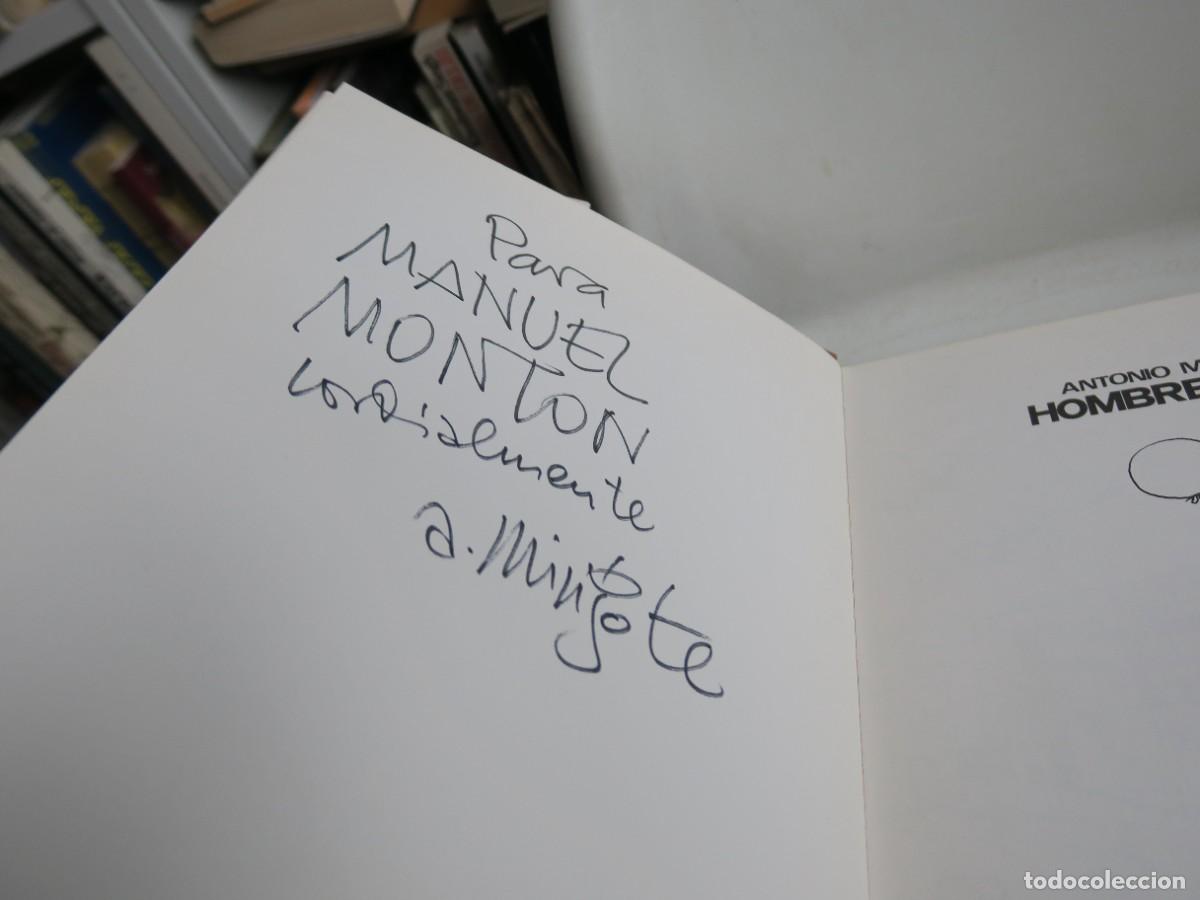 Para
MANUEL
MONTON
cordialmente
a. Mingote
ANTONIO M
HOMBRE
todocoleccion